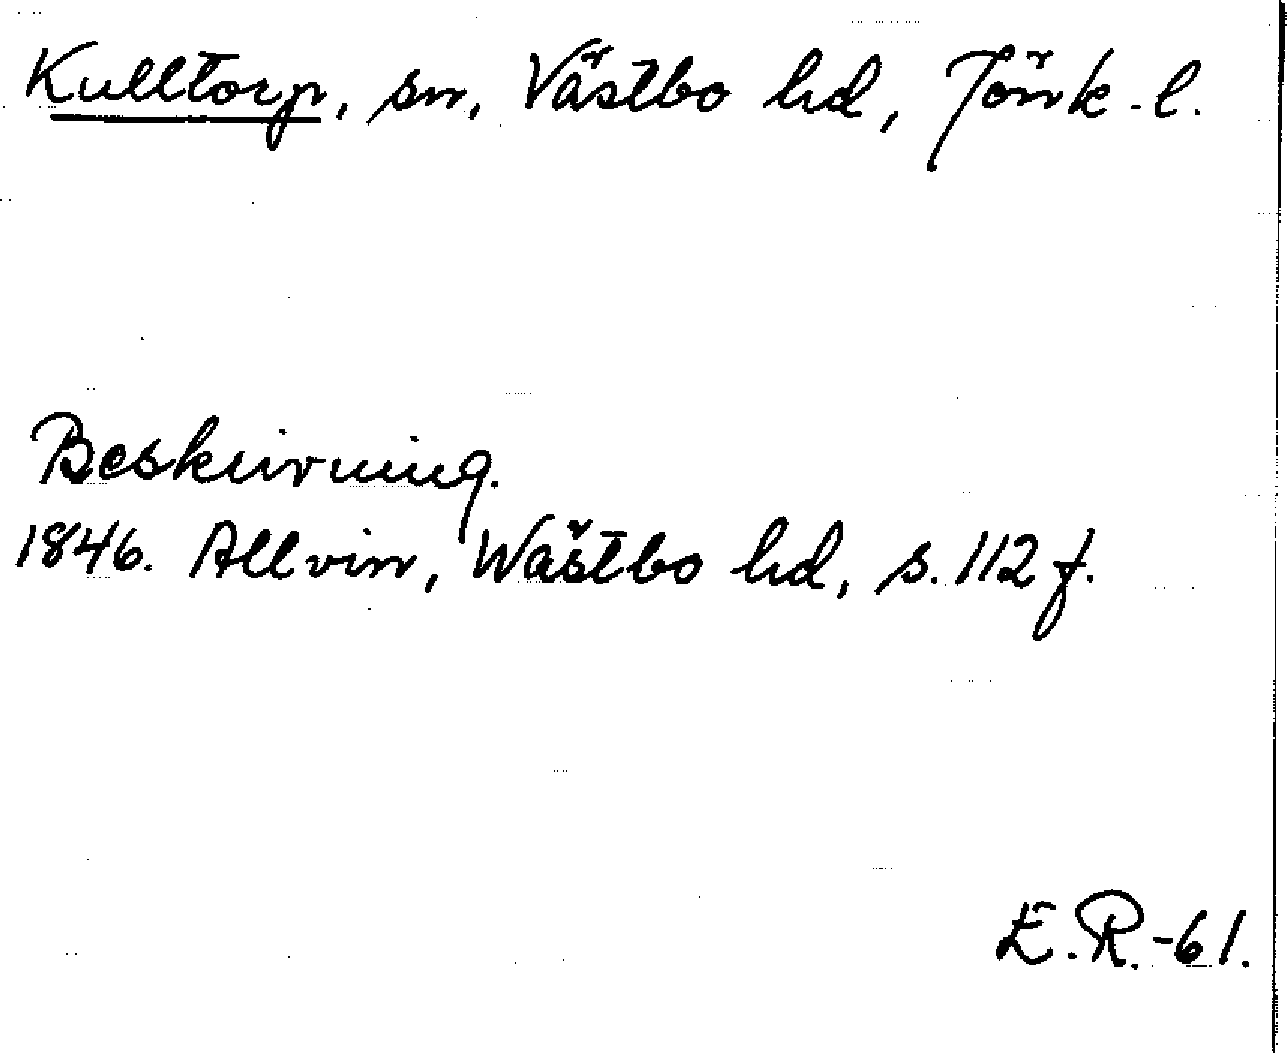 Kulltorp, sn, Västbo hd, Jönk. l.
Beskrivning.
1846. Allvin, Wästbo hd, s. 112 f.
E.R.-61.